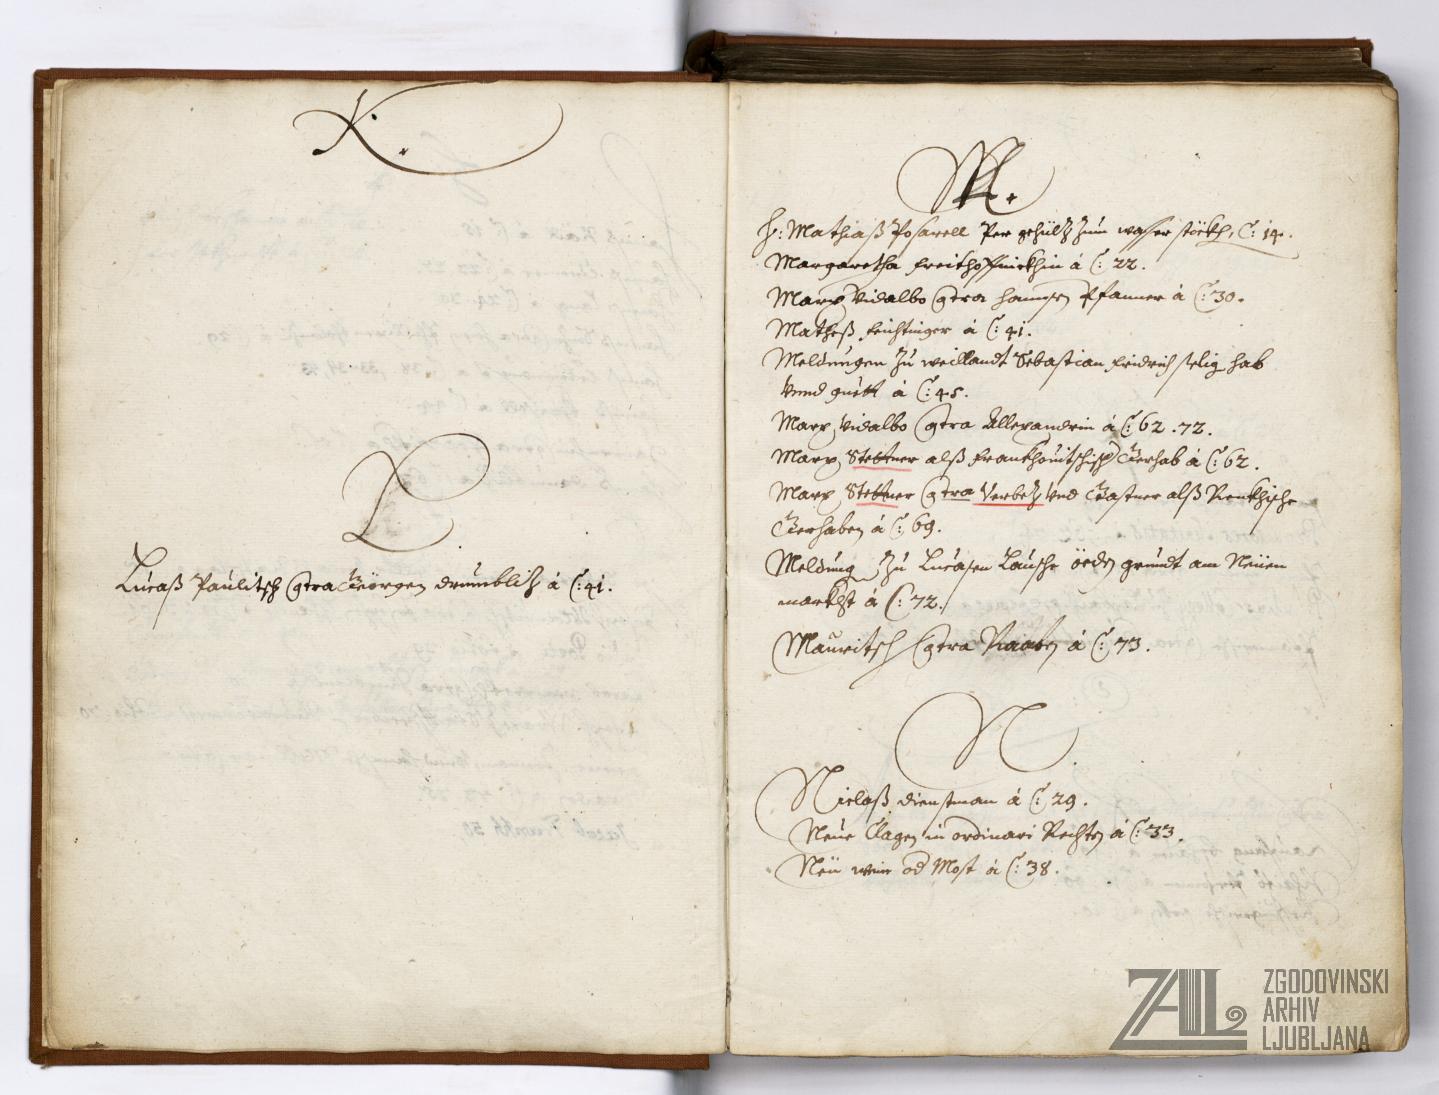 K.
L.
Lucaß Paulitsch Contra Geörgen drumblitz á C: 41.
M.
H: Mathiaß Posarell Per gehülz zum wasser stöckh, C: 14.
Margaretha Freithoffnickhin á C: 22.
Marx Vidalbo Contra Hannsen Pfanner á C: 30.
Matheß Feichtinger á C: 41.
Meldungen zu weillandt Sebastian Fridrich selig hab
vnnd guett á C: 45.
Marx Vidalbo Contra Allexandrin á C: 62. 72.
Marx Stettner alß Frankhouitschisch Gerhab á C: 62.
Marx Stettner Contra Verbez vnd Gastner alß Renkhische
Gerhaben á C: 69.
Meldung zu Lucasen Lausche öeden grundt am Neüen
markht á C: 72.
Mauritsch Contra Raab á C: 73.
N.
Niclaß dienstman á C: 29.
Neue Clagen in ordinari Rechten á C: 33.
Neü wein od Most á C: 38.
ZAL
ZGODOVINSKI
ARHIV
LJUBLJANA